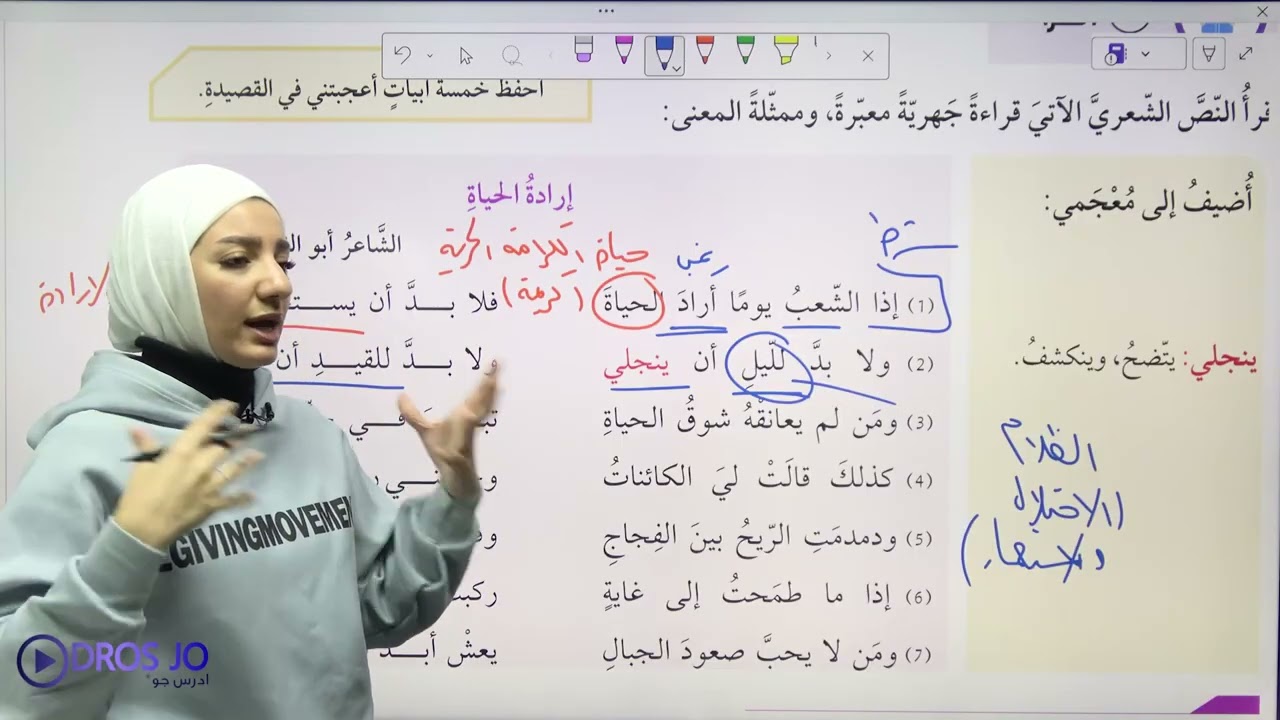 احفظ خمسة أبياتٍ أعجبتني في القصيدةِ.
قرأُ النّصَّ الشّعريَّ الآتيَ قراءةً جَهريّةً معبّرةً، وممثّلةً المعنى:
أُضيفُ إلى مُعْجَمي:
إرادةُ الحياةِ
الشَّاعرُ أبو الق
شرط
رغب
حياة الكرامة الحرية
(كريمة)
الإرادة
(1) إذا الشّعبُ يومًا أرادَ الحياةَ فلا بــدَّ أن يســتـ
(2) ولا بدَّ للّيلِ أن ينجلي ولا بــدَّ للقيدِ أن
ينجلي: يتّضحُ، وينكشفُ.
(3) ومَن لم يعانقْهُ شوقُ الحياةِ تبـ ـرَ فــي
(4) كذلكَ قالَتْ ليَ الكائناتُ
(5) ودمدمَتِ الرّيحُ بينَ الفِجاجِ
(6) إذا ما طمَحتُ إلى غايةٍ ركبـ
(7) ومَن لا يحبَّ صعودَ الجبالِ يعشْ أبــد
الظلام
(الاحتلال
GIVINGMOVEMEN
DROS JO
ادرس جو